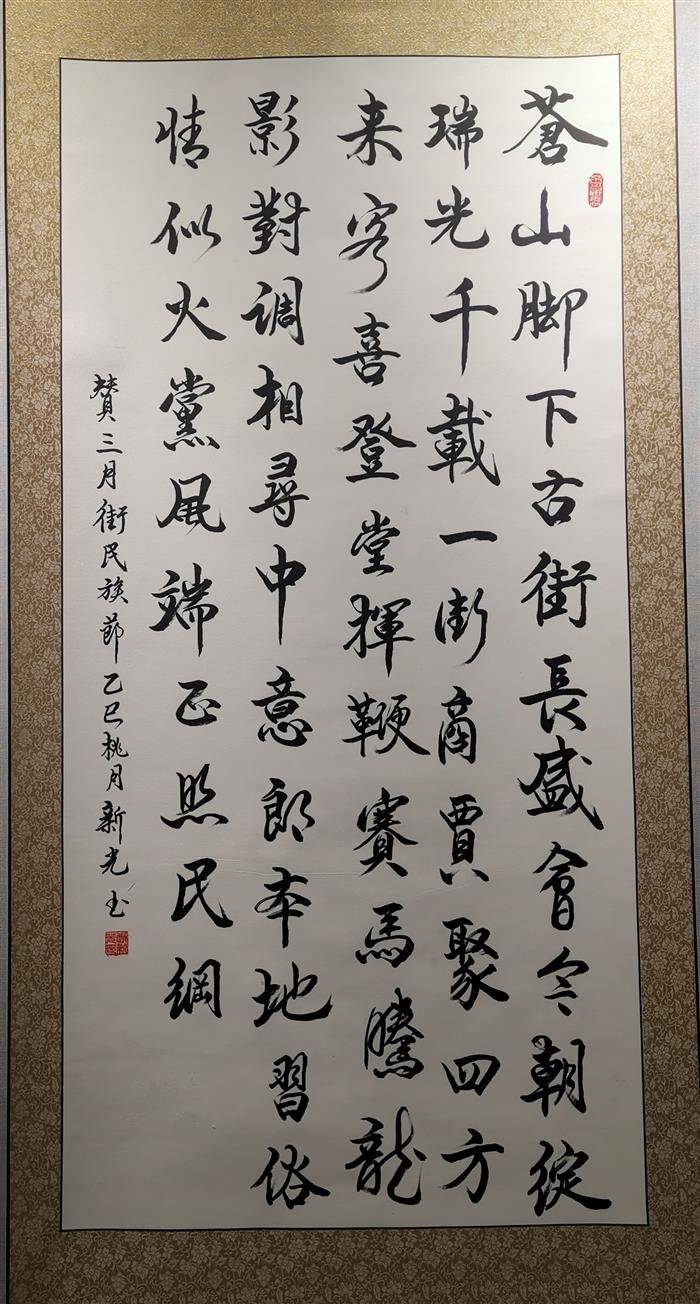 蒼山脚下古街長盛會今朝綻
瑞光千載一街商賈聚四方
来客喜登堂揮鞭賽馬騰龍
影對調相尋中意郎本地習俗
情似火黨風端正照民綱
賛三月街民族節乙巳桃月新光书